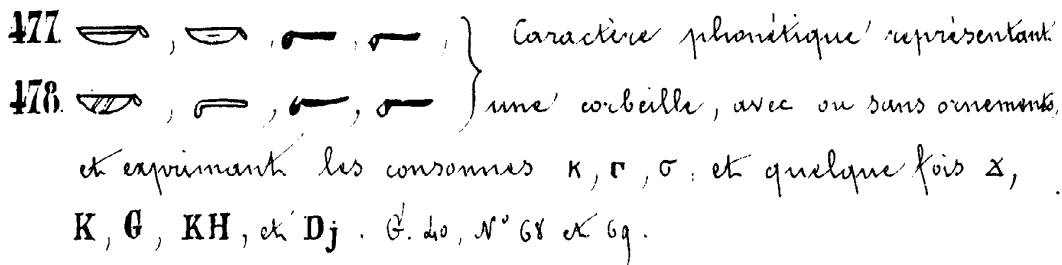 477. , , , , Caractère phonétique représentant
478. , , , une corbeille, avec ou sans ornements,
et exprimant les consonnes ⲕ, ⲅ, ϭ. et quelque fois ϫ,
K, G, KH, et Dj. G. 40, N° 68 et 69.